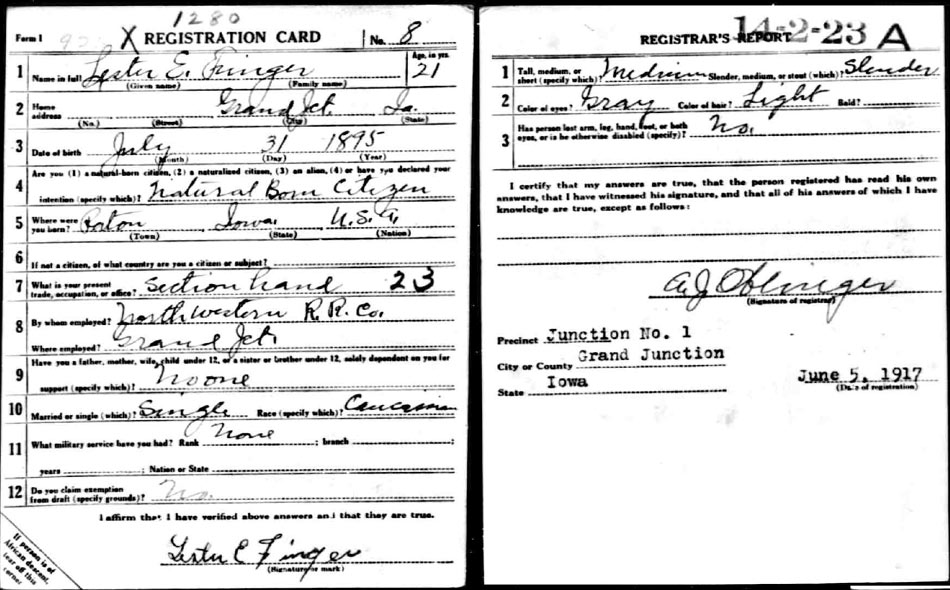 1280
Form 1 X REGISTRATION CARD No. 8
1 Name in full Lester E. Finger Age, in yrs. 21
(Given name) (Family name)
2 Home address Grand Jct. Ia.
(No.) (Street) (City) (State)
3 Date of birth July 31 1895
(Month) (Day) (Year)
Are you (1) a natural-born citizen, (2) a naturalized citizen, (3) an alien, (4) or have you declared your
4 intention (specify which)? Natural Born Citizen
5 Where were you born? Iowa U.S.A.
(Town) (State) (Nation)
6 If not a citizen, of what country are you a citizen or subject?
7 What is your present trade, occupation, or office? Section hand 23
8 By whom employed? Northwestern R.R. Co.
Where employed? Grand Jct.
Have you a father, mother, wife, child under 12, or a sister or brother under 12, solely dependent on you for
9 support (specify which)? No one
10 Married or single (which)? Single Race (specify which)? Caucasian
11 What military service have you had? Rank None ; branch ;
years ; Nation or State
12 Do you claim exemption from draft (specify grounds)? No.
I affirm that I have verified above answers and that they are true.
Lester E Finger
(Signature or mark)
If person is of
African descent,
tear off this
corner.
14-2-23 A
REGISTRAR'S REPORT
1 Tall, medium, or short (specify which)? Medium Slender, medium, or stout (which)? Slender
2 Color of eyes? Gray Color of hair? Light Bald?
3 Has person lost arm, leg, hand, foot, or both eyes, or is he otherwise disabled (specify)? No.
I certify that my answers are true, that the person registered has read his own
answers, that I have witnessed his signature, and that all of his answers of which I have
knowledge are true, except as follows:
A J Oblinger
(Signature of registrar)
Precinct Junction No. 1
City or County Grand Junction
State Iowa
June 5, 1917
(Date of registration)